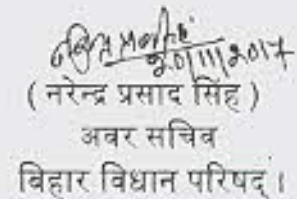 20/11/2017
( नरेन्द्र प्रसाद सिंह )
अवर सचिव
बिहार विधान परिषद् ।